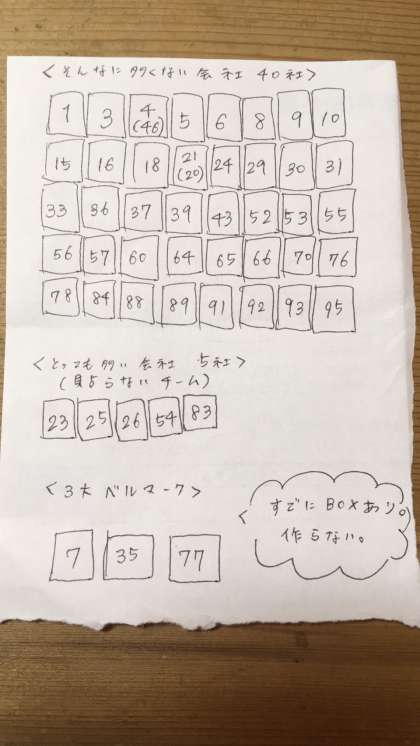 <そんなに多くない会社 40社>
1 3 4(46) 5 6 8 9 10
15 16 18 21(20) 24 29 30 31
33 36 37 39 43 52 53 55
56 57 60 64 65 66 70 76
78 84 88 89 91 92 93 95
<とっても多い会社 5社>
(貝よらないチーム)
23 25 26 54 83
<3大ベルマーク>
7 35 77
すでにBOXあり。
作らない。